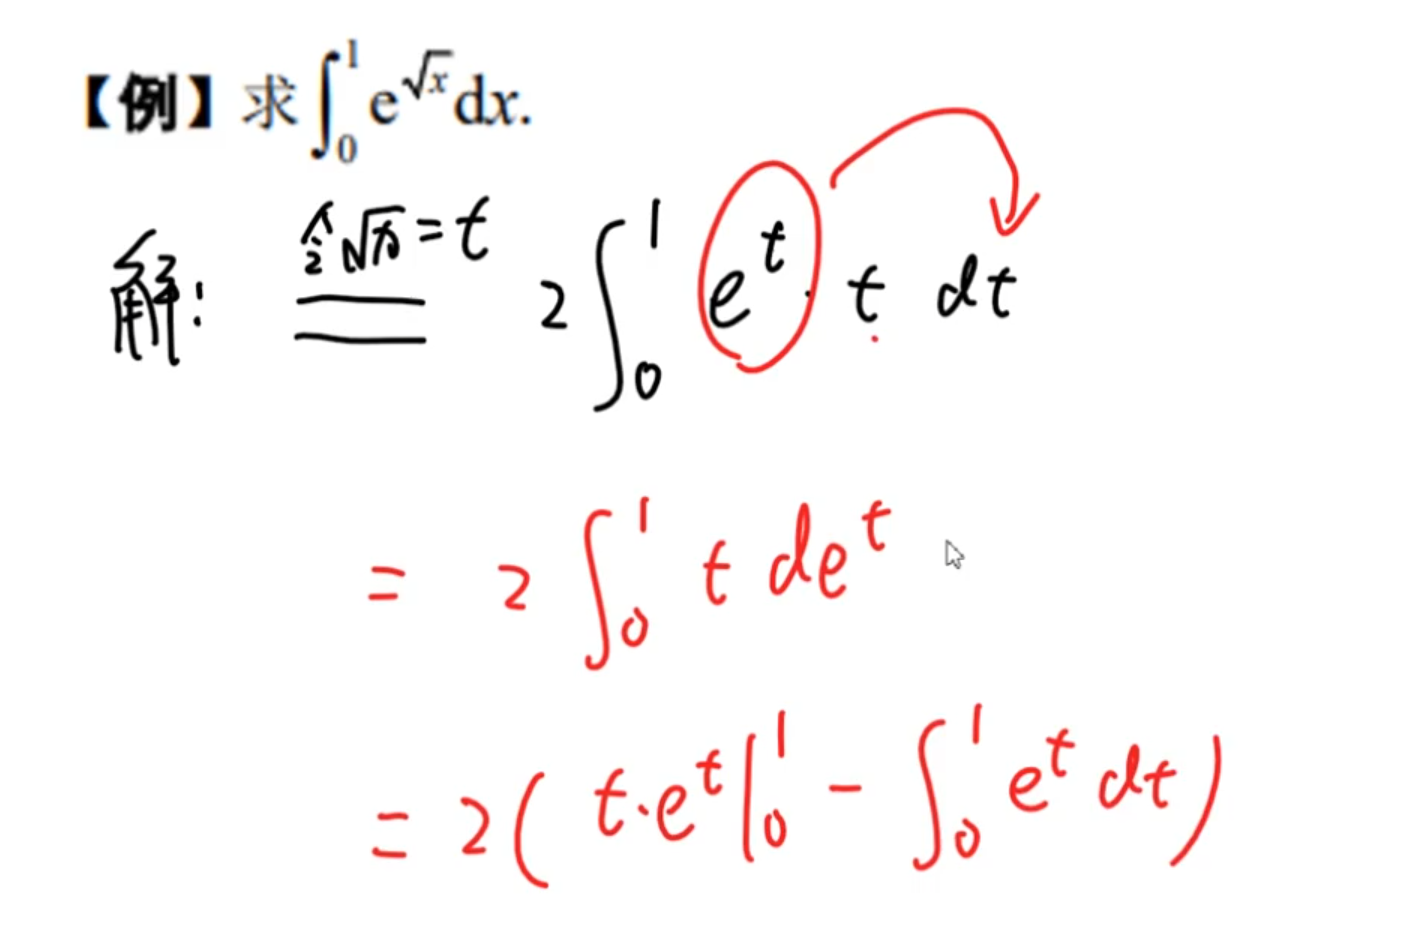 【例】求∫₀¹ e^√x dx.
解: 令√x = t 2∫₀¹ e^t · t dt
= 2∫₀¹ t de^t
= 2( t·e^t |₀¹ - ∫₀¹ e^t dt )